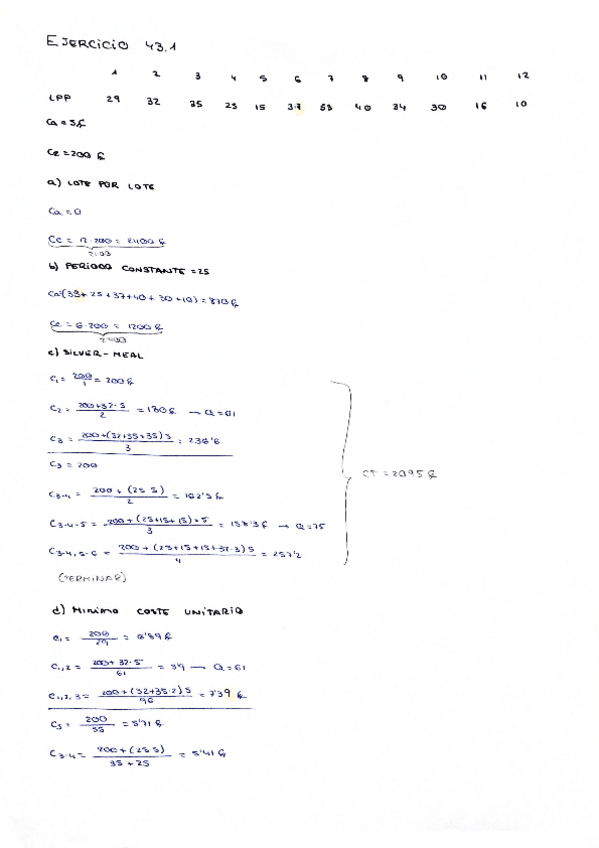 EJERCICIO 43.1
1 2 3 4 5 6 7 8 9 10 11 12
LPP 29 32 35 25 15 37 53 40 34 30 16 10
Ca = 5€
Ce = 200 €
a) LOTE POR LOTE
Ca = 0
Ce = 12·200 = 2400 €
b) PERIODO CONSTANTE = 2S
Ce = 6·200 = 1200 €
c) SILVER-MEAL
C1 = 200/1 = 200 €
C2 = 200+32·5/2 = 180 € → Q=61
C3 = 200+(32+35+35)5/3 = 236'6
C3 = 200
C3-4 = 200 + (25·5)/2 = 162'5 €
C3-4-5 = 200+(25+15+15)·5/3 = 158'3€ → Q=75
C3-4,5-6 = 200+(25+15+15+37·3)5/4 = 257'2
CT = 2095 €
(TERMINAR)
d) MINIMO COSTE UNITARIO
C1 = 200/29 = 6'89 €
C1,2 = 200+32·5/61 = 5'9 → Q=61
C1,2,3 = 200+(32+35·2)5/96 = 7'39 €
C3 = 200/35 = 5'71 €
C3-4 = 200+(25·5)/35+25 = 5'41 €